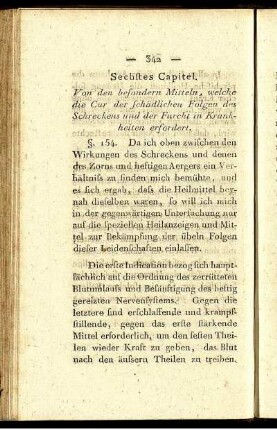 — 342 —
Sechstes Capitel.
Von den besondern Mitteln, welche
die Cur der schädlichen Folgen des
Schreckens und der Furcht in Krank-
heiten erfordert.
§. 154. Da ich oben zwischen den
Wirkungen des Schreckens und denen
des Zorns und heftigen Aergers ein Ver-
hältniss zu finden mich bemühte, und
es sich ergab, dass die Heilmittel bey-
nah dieselben waren, so will ich mich
in der gegenwärtigen Untersuchung nur
auf die speziellen Heilanzeigen und Mit-
tel zur Bekämpfung der übeln Folgen
dieser Leidenschaften einlassen.
Die erste Indication bezog sich haupt-
sächlich auf die Ordnung des zerrütteten
Blutumlaufs und Besänftigung des heftig
gereizten Nervensystems. Gegen die
letztere sind erschlaffende und krampf-
stillende, gegen das erste stärkende
Mittel erforderlich, um den festen Thei-
len wieder Kraft zu geben, das Blut
nach den äussern Theilen zu treiben,